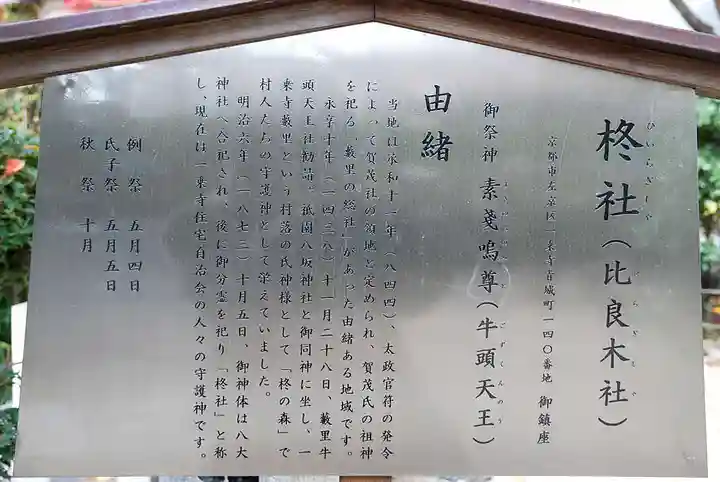 柊社(比良木社)
ひいらぎしゃ
京都市左京区一乗寺青城町一四〇番地 御鎮座
御祭神 素戔嗚尊(牛頭天王)
由緒
当地は承和十一年(八四四)、太政官符の発令
によって賀茂社の領地と定められ、賀茂氏の祖神
を祀る「藪里の総社」があった由緒ある地域です。
永享十年(一四三八)十一月二十八日、藪里牛
頭天王社勧請。祇園八坂神社と御同神に坐し、一
乗寺藪里という村落の氏神様として「柊の森」で
村人たちの守護神として栄えていました。
明治六年(一八七三)十月五日、御神体は八大
神社へ合祀され、後に御分霊を祀り「柊社」と称
し、現在は一乗寺住宅自治会の人々の守護神です。
例祭 五月四日
氏子祭 五月五日
秋祭 十月